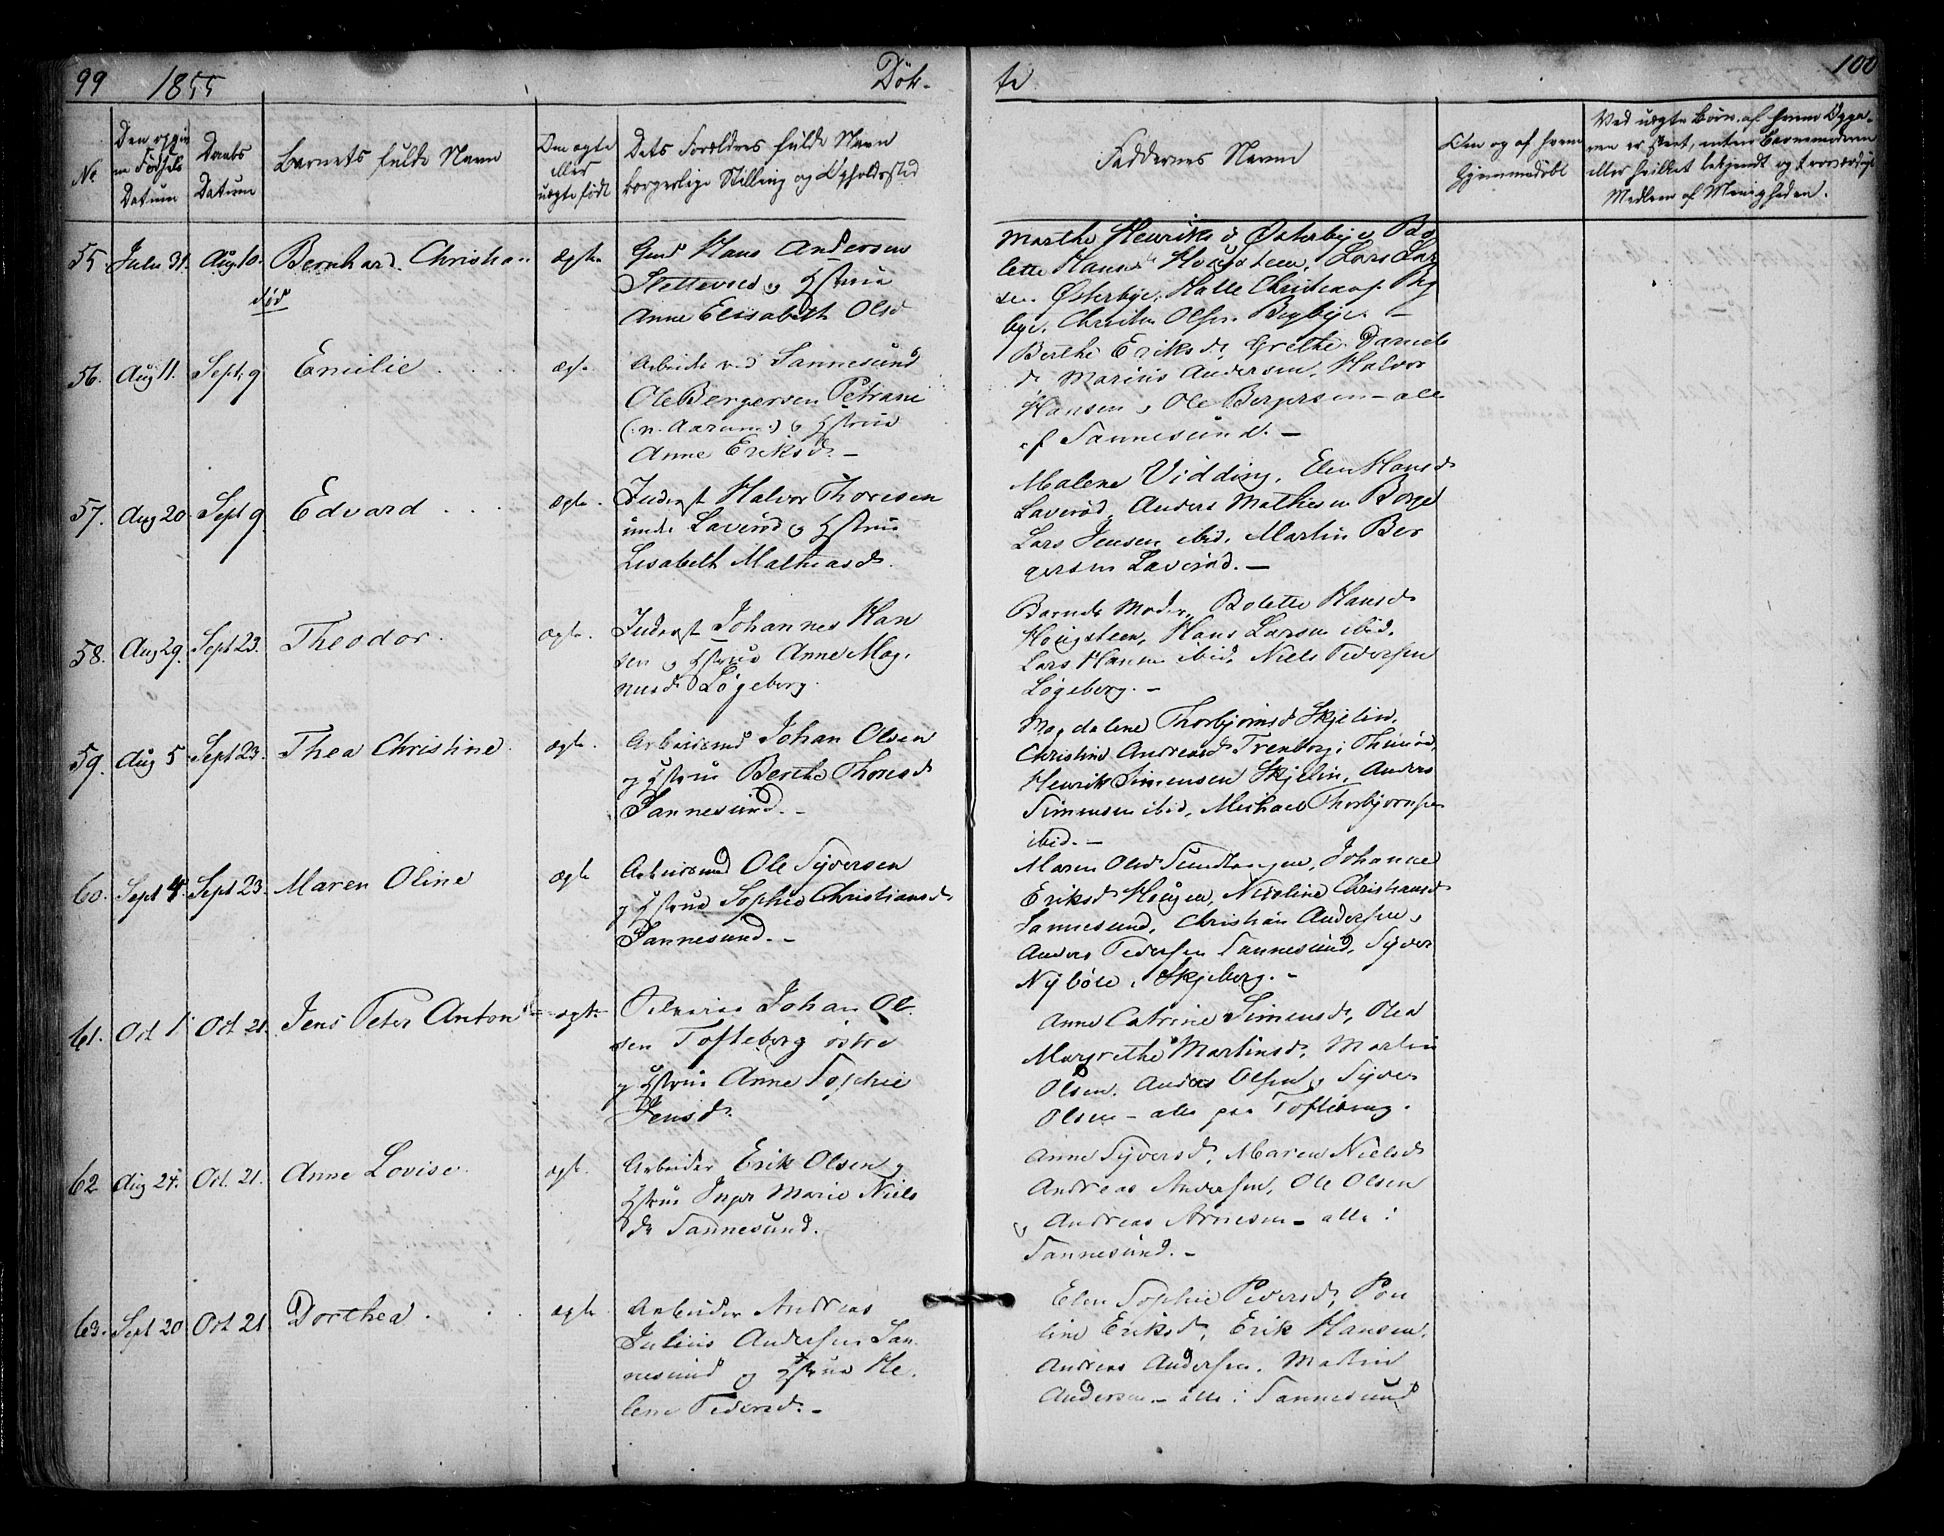 99 1855 Døb-
te 100
No
Den opgiv
ne Fødsels
Datum
Daabs
Datum
Barnets fulde Navn
Om ægte
eller
uægte født
Dets Forældres fulde Navn
borgerlige Stilling og Opholdssted
Faddernes Navne
Om og af hvem
hjemmedøbt
Ved uægte Børn, af hvem Opga-
ven er skeet, enten Barnemoderen
eller hvilket bekjendt og troværdigt
Medlem af Menigheden.
55 Julii 31. Aug 10. Bernhard Christian ægte
død
Gmd Hans Andersen
og Hstrue
Anne Elisabeth Olsd
Marthe Henriksd Østerbye, Bo
lette Hansd Hougsteen, Lars Lar
sen Østerbye, Halle Christensen Byg
bye, Christen Olsen Bygbye. -
56. Aug 11. Sept. 9 Emilie æg.
Arbeider ved Sannesund
Ole Bergersen Petrani
(n. Aarum) og Hstrue
Anne Eriksd. -
Berthe Eriksd, Grethe Daniels
d. Marius Andersen, Halvor
Hansen, Ole Bergersen - alle
af Sannesund. -
57. Aug 20. Sept 9 Edvard ægte.
Inderst Halvor Thoresen
under Laverød og Hstrue
Lisabeth Mathiasd.
Malene Vidding, Elen Hansd
Laverød, Anders Mathisen Borge
Lars Jensen ibid, Martin Ber
gersen Laverød. -
58. Aug 29. Sept 23. Theodor. ægte.
Inderst Johannes Han
sen og Hstrue Anne Mag.
nusd. Løgeberg.
Barnets Moder, Bolette Hansd
Hougsteen, Hans Larsen ibid,
Lars Hansen ibid, Niels Pedersen
Løgeberg. -
59. Aug 5. Sept 23. Thea Christine. ægte.
Arbeidsmd Johan Olsen
og Hstrue Berthe Thoresd
Sannesund. -
Magdalene Thorbjørnsd Skjelin,
Christine Andreasd Trenborg i Thunø,
Henrik Simensen Skjelin, Anders
Simensen ibid, Michael Thorbjørnsen
ibid. -
60. Sept 4. Sept 23. Maren Oline ægte
Arbeidsmd Ole Syversen
og Hstrue Sophie Christiansd
Sannesund. -
Maren Olsd Sundtangen, Johanne
Eriksd Hougen, Nicoline Christiansd
Sannesund, Christian Andersen,
Anders Pedersen Sannesund, Syver
Nybøle, Skjeberg. -
61. Oct 1. Oct 21. Jens Peter Anton ægte
Selveier Johan Ol.
sen Tofteberg østre
og Hstrue Anne Sophie
Jensd.
Anne Catrine Simensd, Olea
Margrethe Martinsd, Martin
Olsen, Anders Olsen og Syver
Olsen - alle paa Tofteberg.
62 Aug 24. Oct. 21. Anne Lovise. ægt.
Arbeider Erik Olsen og
Hstrue Inger Marie Niels
d. Sannesund.
Anne Syversd, Maren Nielsd
Andreas Andersen, Ole Olsen
og Andreas Arnesen - alle i
Sannesund. -
63. Sept 20. Oct 21. Dorthea. ægte
Arbeider Andreas
Julius Andersen San
nesund og Hstrue He.
lene Pedersd. -
Elen Sophie Pedersd, Pou
line Eriksd, Erik Hansen,
Andreas Andersen, Martin
Andersen - alle i Sannesund